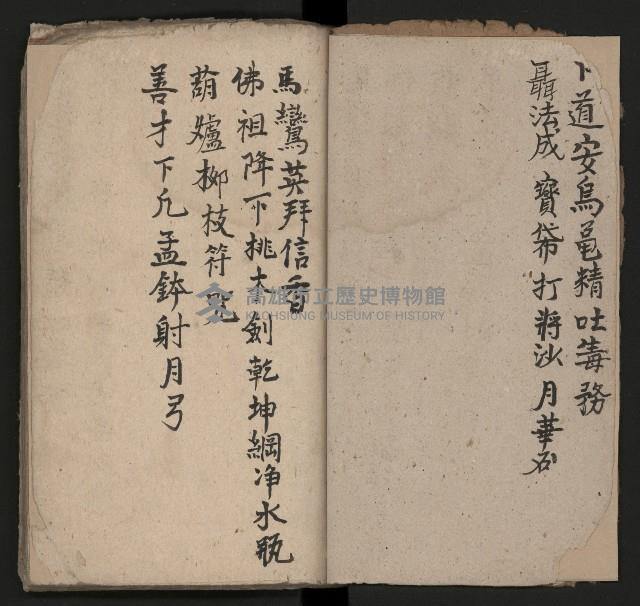 卞道安烏黾精吐毒務
聶法成 寶袋 打將沙 月華石
馬鸞英拜信香
佛祖降下桃木劍乾坤綱净水瓶
葫爐栁枝符
善才下凢孟鉢射月弓
高雄市立歷史博物館
KAOHSIUNG MUSEUM OF HISTORY